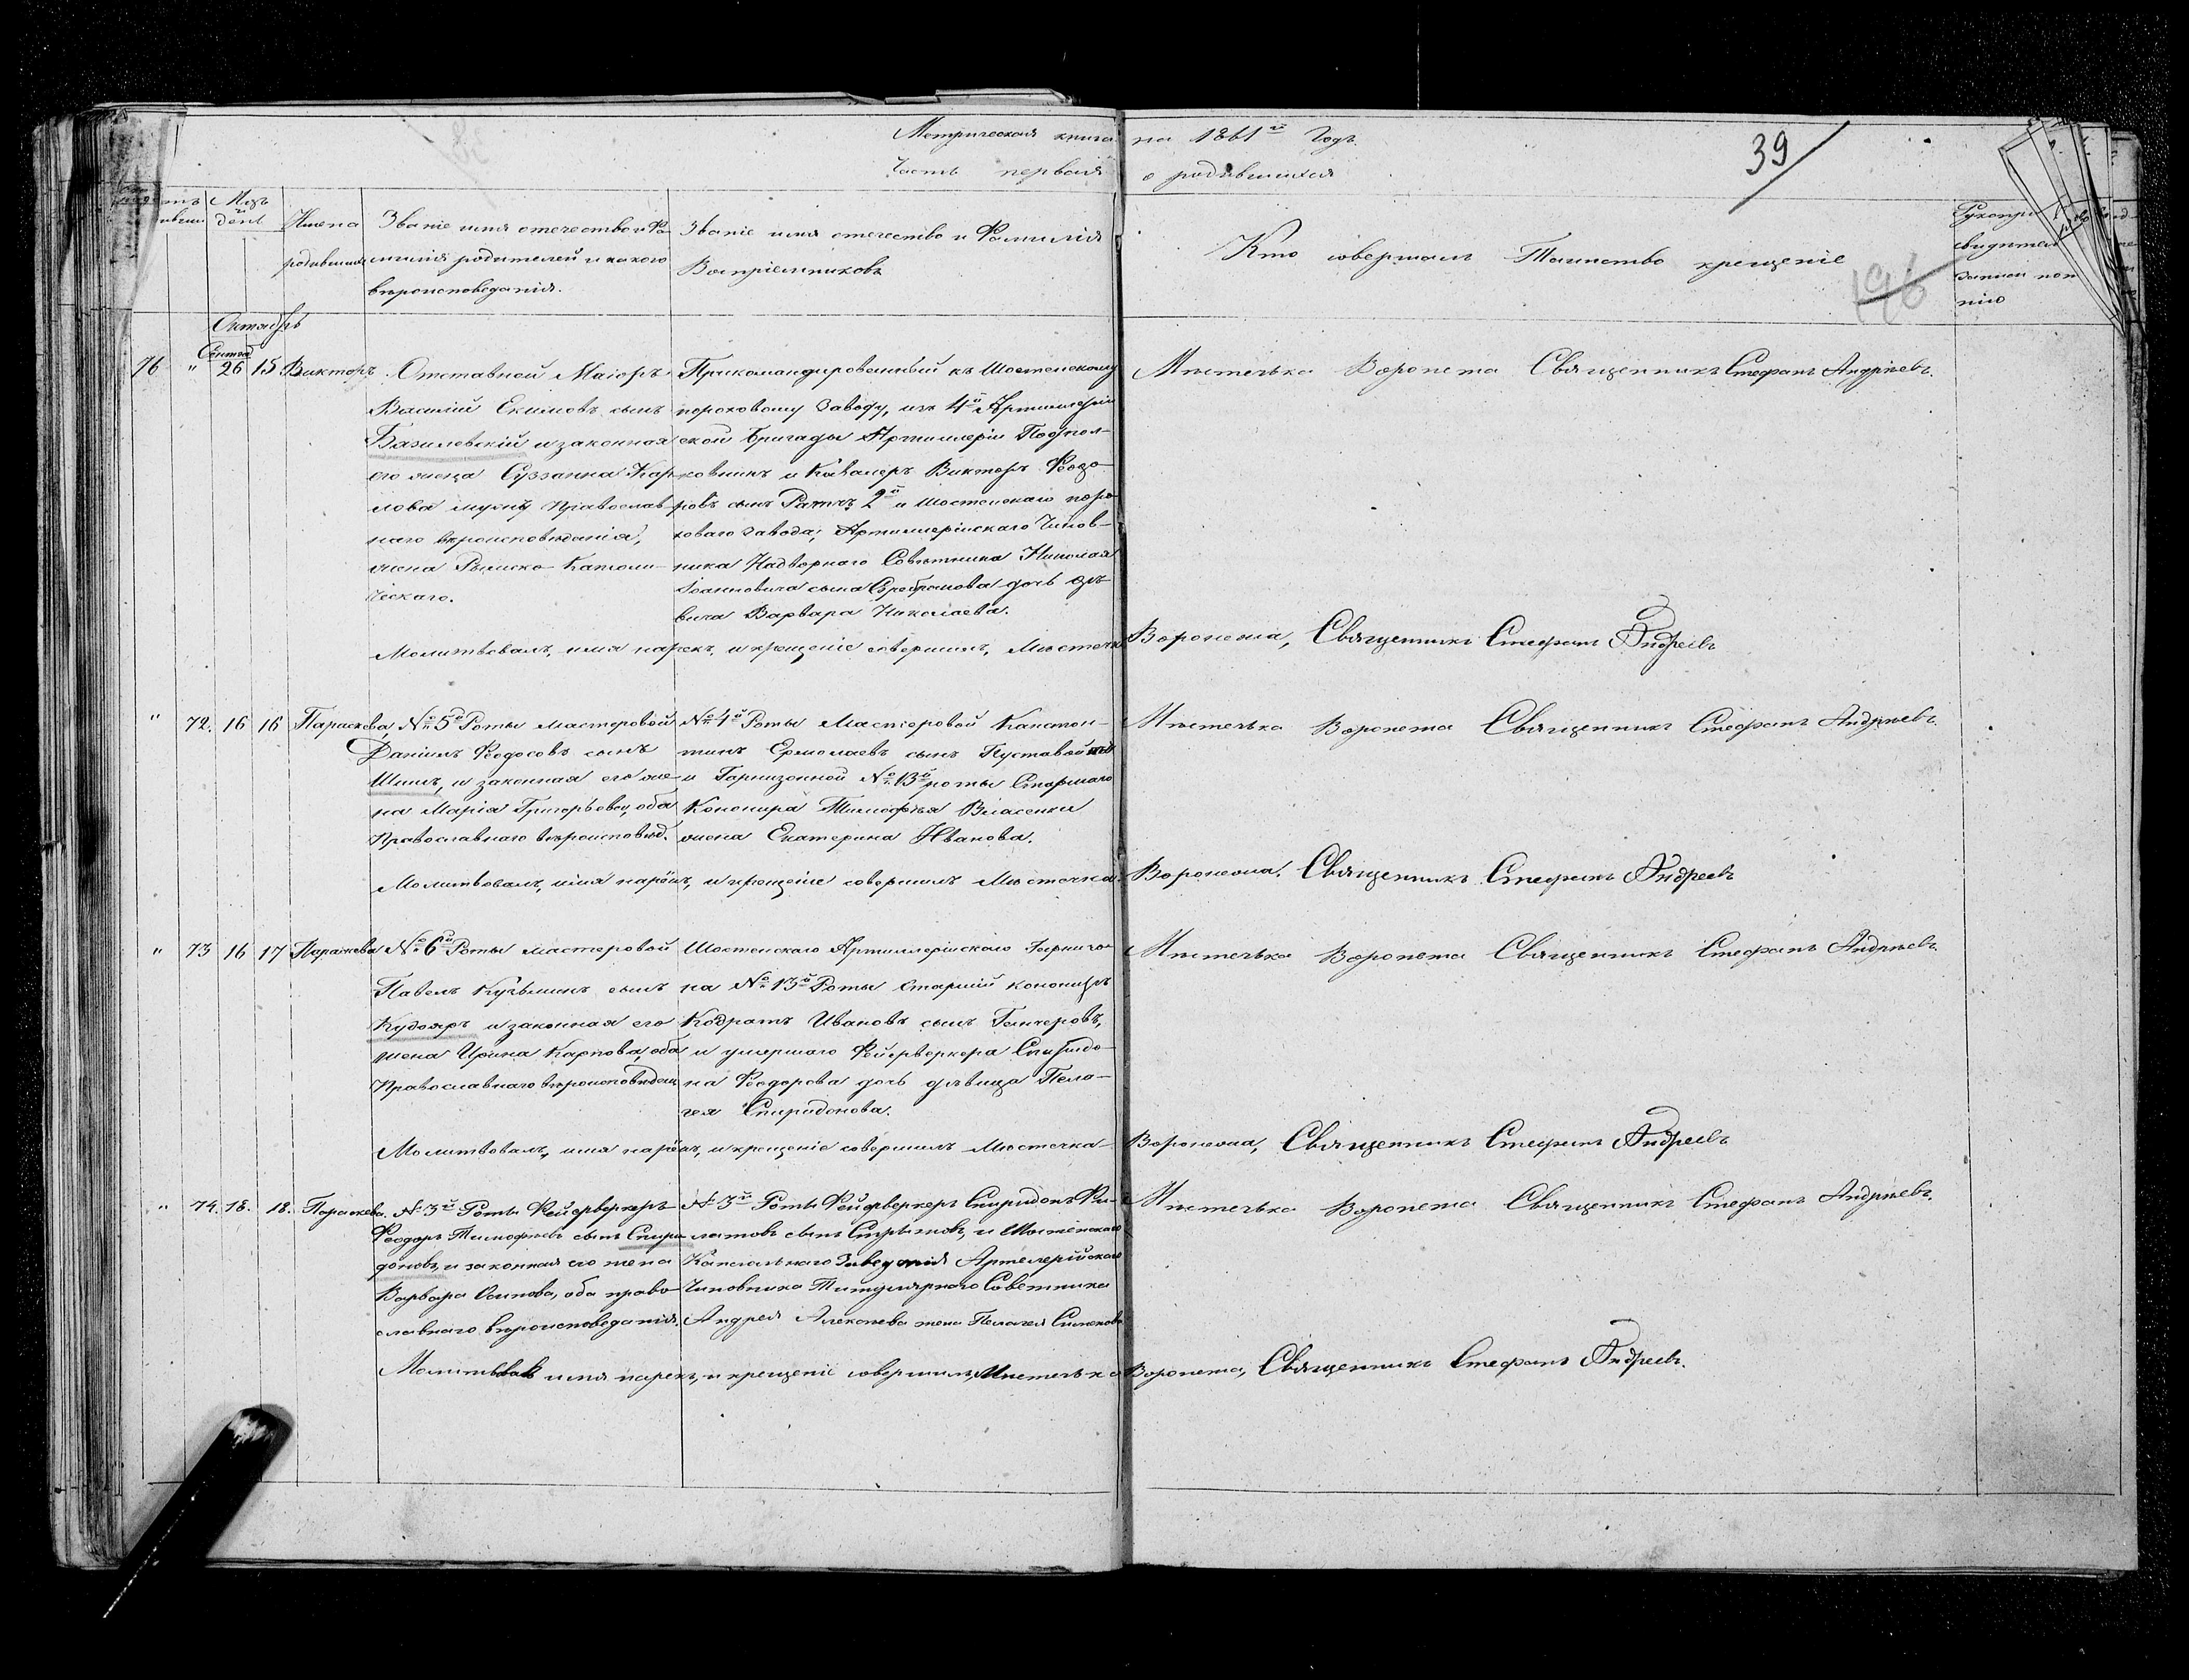 Метрическая книга на 1861й Годъ.
Часть первая о родившихся
39
196
Мѣц. и день
Имена родившихся
Званіе имя отечество и Фамилія родителей и какого вѣроисповеданія.
Званіе имя отечество и Фамилія Воспріемниковъ
Кто совершалъ Таинство крещеніе
Октябрь
Сентяб
76 " 26 15 Викторъ
Отставной Маіоръ
Василій Екимовъ сынъ
Базилевскій и законная
его жена Сузанна Кар-
лова мужъ Православ-
наго вѣроисповѣданія,
жена Римско-Католи-
ческаго.
Прикомандированный къ Шостенскому
пороховому Заводу, изъ 4й Артиллерій
ской Бригады Артиллеріи Подпол-
ковникъ и Кавалеръ Викторъ Феодо-
ровъ сынъ 2й и Шостенскаго поро-
ховаго завода, Артиллерійскаго Чинов-
ника Надворнаго Совѣтника Николая
Іоанновича сына Серебрякова дочь дѣ-
вица Варвара Николаева.
Мѣстечка Воронежа Священникъ Стефанъ Андріевъ.
Молитвовалъ, имя нарекъ, и крещеніе совершилъ, Мѣстечка Воронежа, Священникъ Стефанъ Андреевъ
" 72. 16 16 Параскева,
№ 5й Роты мастеровой
Даніилъ Федосовъ сынъ
Шишъ, и законная его же-
на Марія Григорьева, оба
Православнаго вѣроисповѣд.
№ 1й Роты Мастеровой Констан-
тинъ Ермолаевъ сынъ Кустовой
и Гарнизонной № 13й роты Старшаго
Канонира Тимофѣя Власенки
жена Екатерина Иванова.
Мѣстечька Воронежа Священникъ Стефанъ Андріевъ.
Молитвовалъ, имя нарёкъ, и крещеніе совершилъ Мѣстечка Воронежа. Священникъ Стефанъ Андреевъ
" 73 16 17 Параскева
№ 6й Роты мастеровой
Павелъ Кузьминъ сынъ
Кудояръ и законная его
жена Ирина Карпова, оба
Православнаго вѣроисповѣдан
Шостенскаго Артиллерійскаго Гарнизо-
на № 13й Роты старшій канониръ
Кодратъ Ивановъ сынъ Гончеровъ,
и умершаго Фейерверкера Спиридо-
на Феодорова дочь дѣвица Пела-
гея Спиридонова.
Мѣстечька Воронежа Священникъ Стефанъ Андріевъ.
Молитвовалъ, имя нарёкъ, и крещеніе совершилъ Мѣстечка Воронежа, Священникъ Стефанъ Андреевъ
" 74. 18. 18. Параскева.
№ 3й Роты Фейерверкеръ
Феодоръ Тимофѣевъ сынъ Спири
доновъ, и законная его жена
Варвара Осипова, оба право-
славнаго вѣроисповеданія.
№ 3й Роты Фейерверкеръ Спиридонъ Фи-
латовъ сынъ и Шостенскаго
Капсюльнаго Заведенія Артелерійскаго
Чиновника Титулярнаго Советника
Андрея Алексеева жена Пелагея Симонова
Мѣстечька Воронежа Священникъ Стефанъ Андріевъ.
имя нарекъ, и крещеніе совершилъ, Мѣстечка Воронежа, Священникъ Стефанъ Андреевъ.